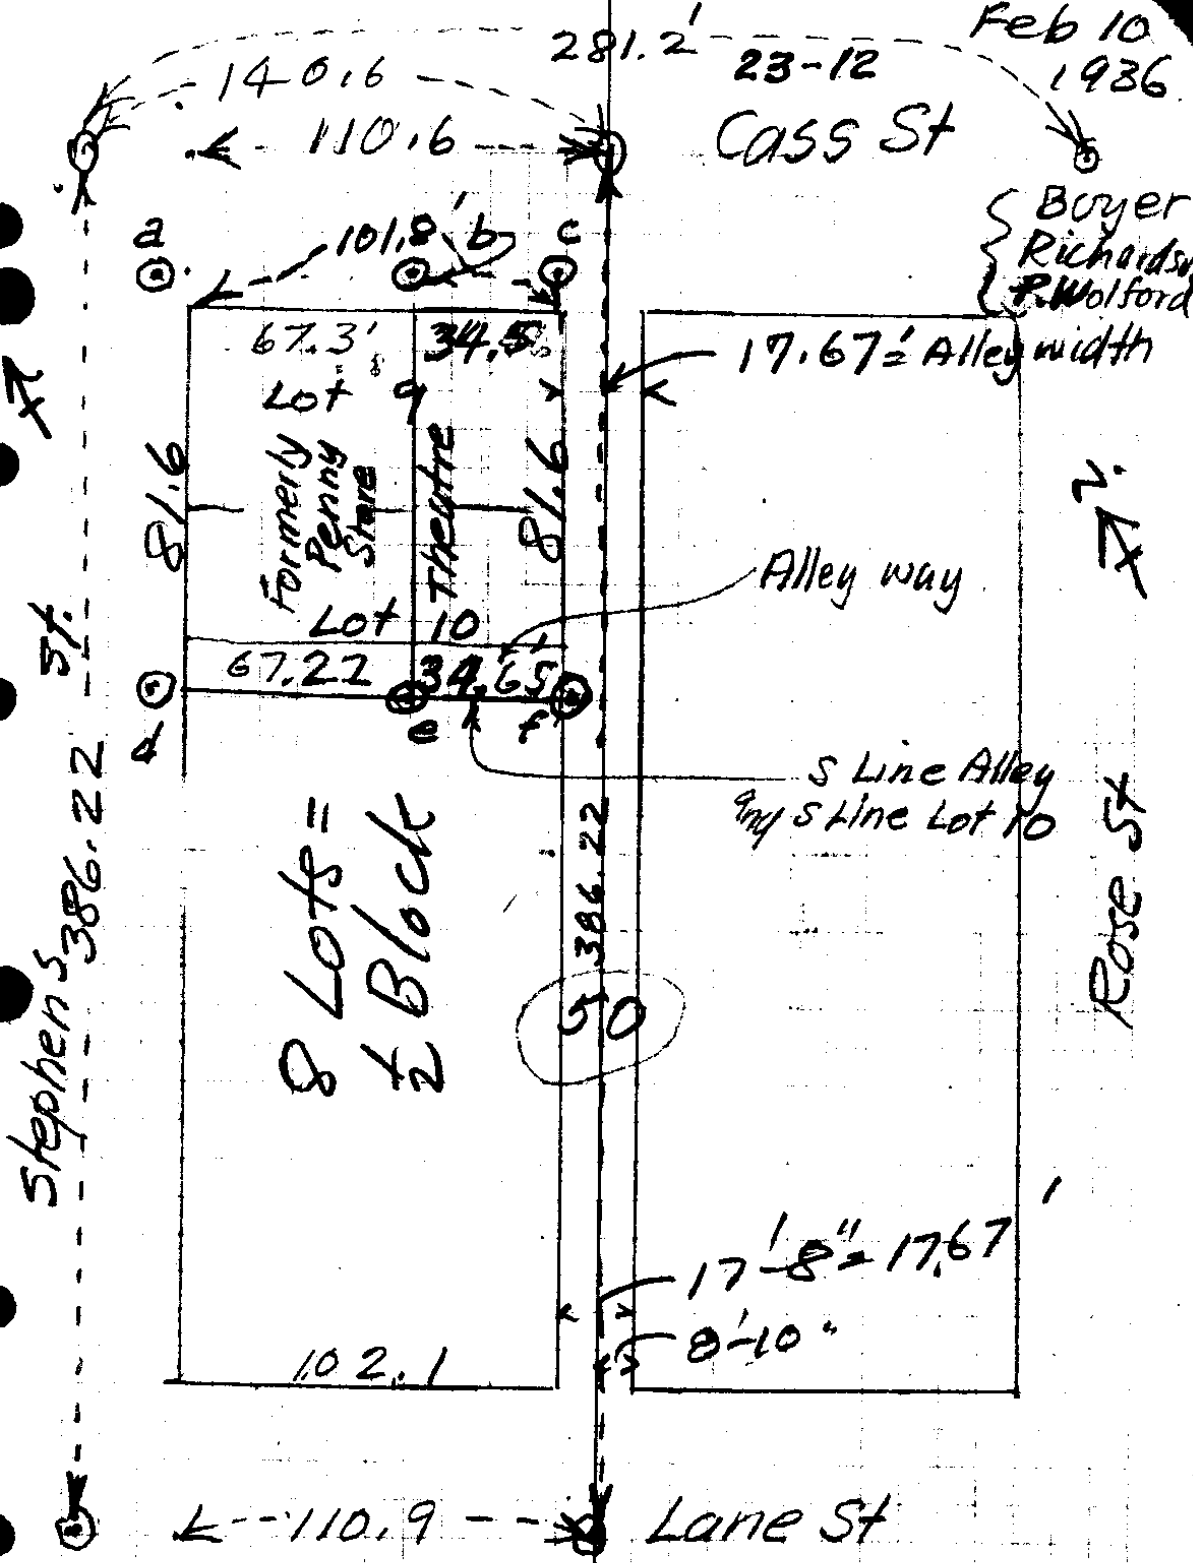 281.2'
Feb 10
1936
140.6
23-12
110.6
Cass St
Boyer
Richardson
P. Wolford
a
101.8'
b
c
67.3'
34.5
17.67' = Alley width
Lot 9
81.6
Formerly
Penny
Store
Theatre
81.6
Alley way
Lot 10
67.22
34.65'
d
e
f
S Line Alley
any S Line Lot 10
Stephens St.
386.22
8 Lots =
½ Block
386.22
50
Rose St
17'-8" = 17.67'
8'-10"
102.1
110.9
Lane St